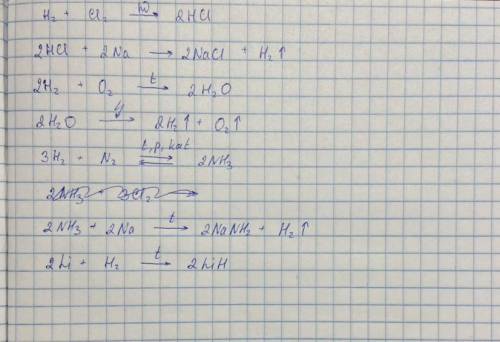 H₂ + Cl₂ —hν→ 2HCl
2HCl + 2Na → 2NaCl + H₂↑
2H₂ + O₂ —t→ 2H₂O
2H₂O → 2H₂↑ + O₂↑
3H₂ + N₂ ⇄ t, p, kat 2NH₃
2NH₃ + 3Cl₂ →
2NH₃ + 2Na —t→ 2NaNH₂ + H₂↑
2Li + H₂ —t→ 2LiH